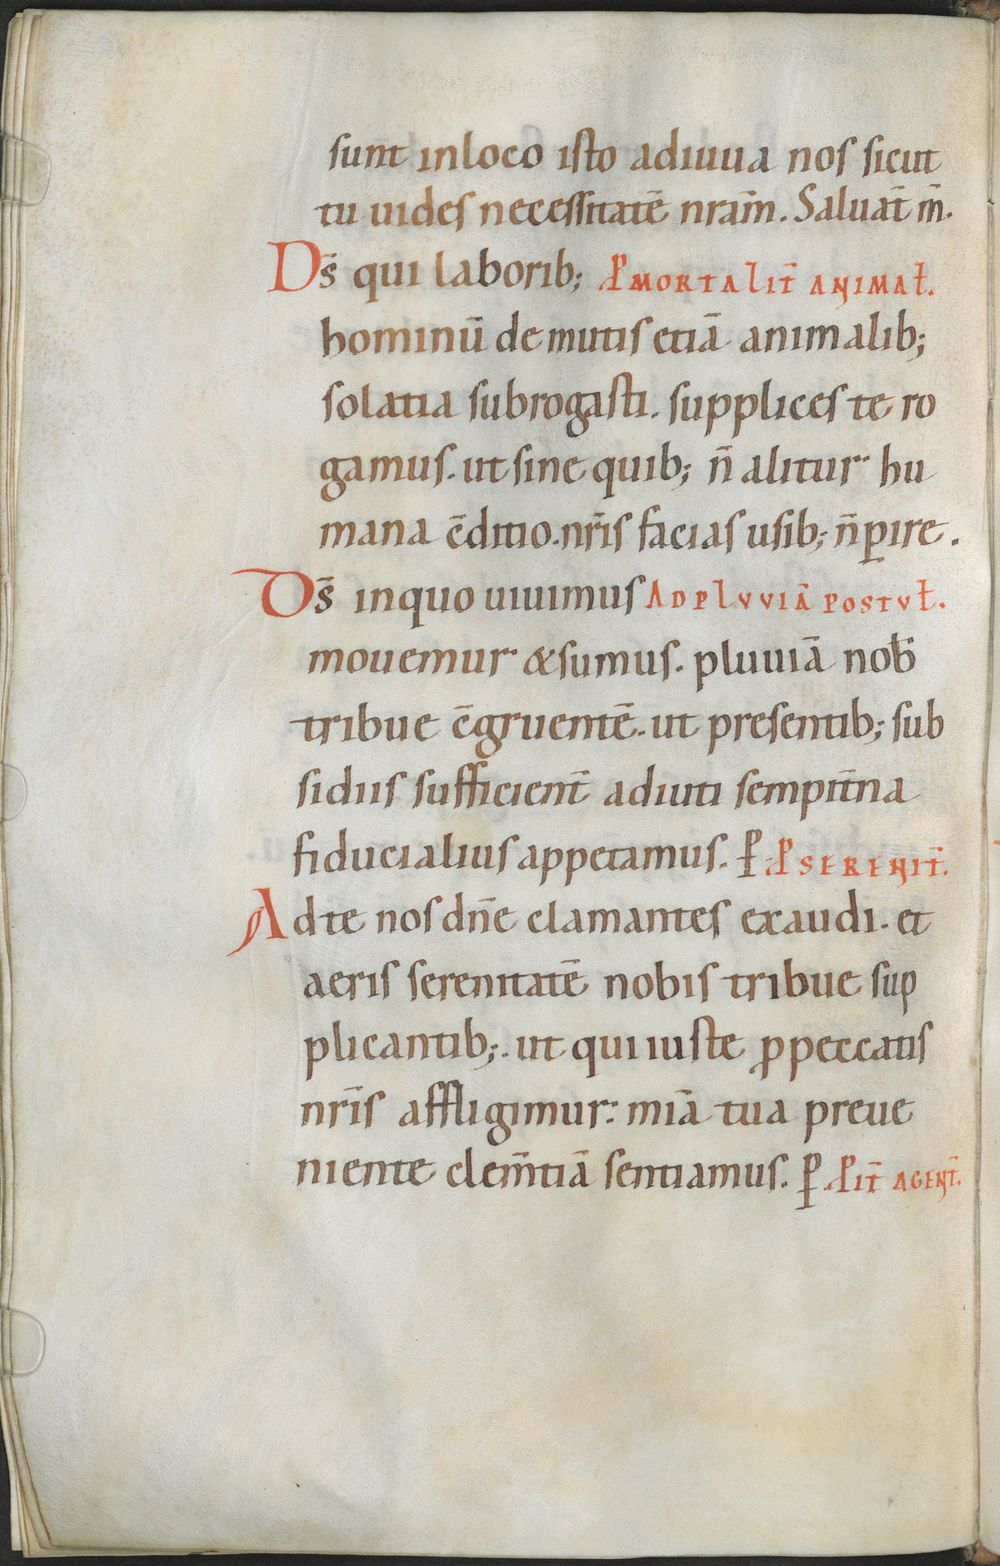 sunt inloco isto adiuua nos sicut
tu uides necessitatē nr̄am. Saluat̄ m̄.
Ds̄ qui laborib; P̱ MORTALIT̄ ANIMAꝉ.
hominū de mutis etiā animalib;
solatia subrogasti. supplices te ro
gamus. ut sine quib; n̄ alitur hu
mana c̄ditio. nr̄is facias usib; n̄ ꝑire.
Ds̄ inquo uiuimus AD PLVVIĀ POSTVꝉ.
mouemur & sumus. pluuiā nob̄
tribue c̄gruentē. ut presentib; sub
sidiis sufficient̄ adiuti sempit̄na
fiducialius appetamus. ꝑ P̱ SERENIT̄.
Ad te nos dn̄e clamantes exaudi. et
aeris serenitatē nobis tribue sup
plicantib;. ut qui iuste ꝓ peccatis
nr̄is affligimur: miā tua preue
niente clem̄tiā sentiamus. ꝑ. P̱ IT̄ AGENT̄.